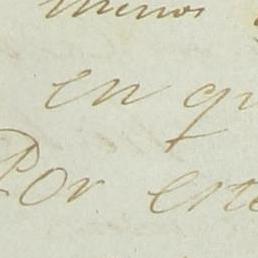 menos
en qu
Por este